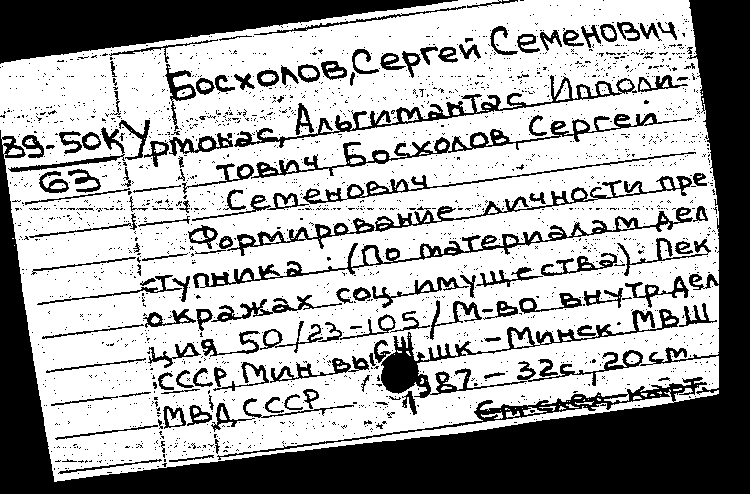 Босхолов, Сергей Семенович.
89-50К Урмонас, Альгимантас Ипполи-
63 тович, Босхолов, Сергей
Семенович
Формирование личности пре
ступника : (По материалам дел
о кражах соц. имущества) : Лек
ция 50/23-105 / М-во внутр. дел
СССР, Мин. высш. шк. - Минск: МВШ
МВД СССР, 1987. - 32с. ; 20 см.
См. след. карт.